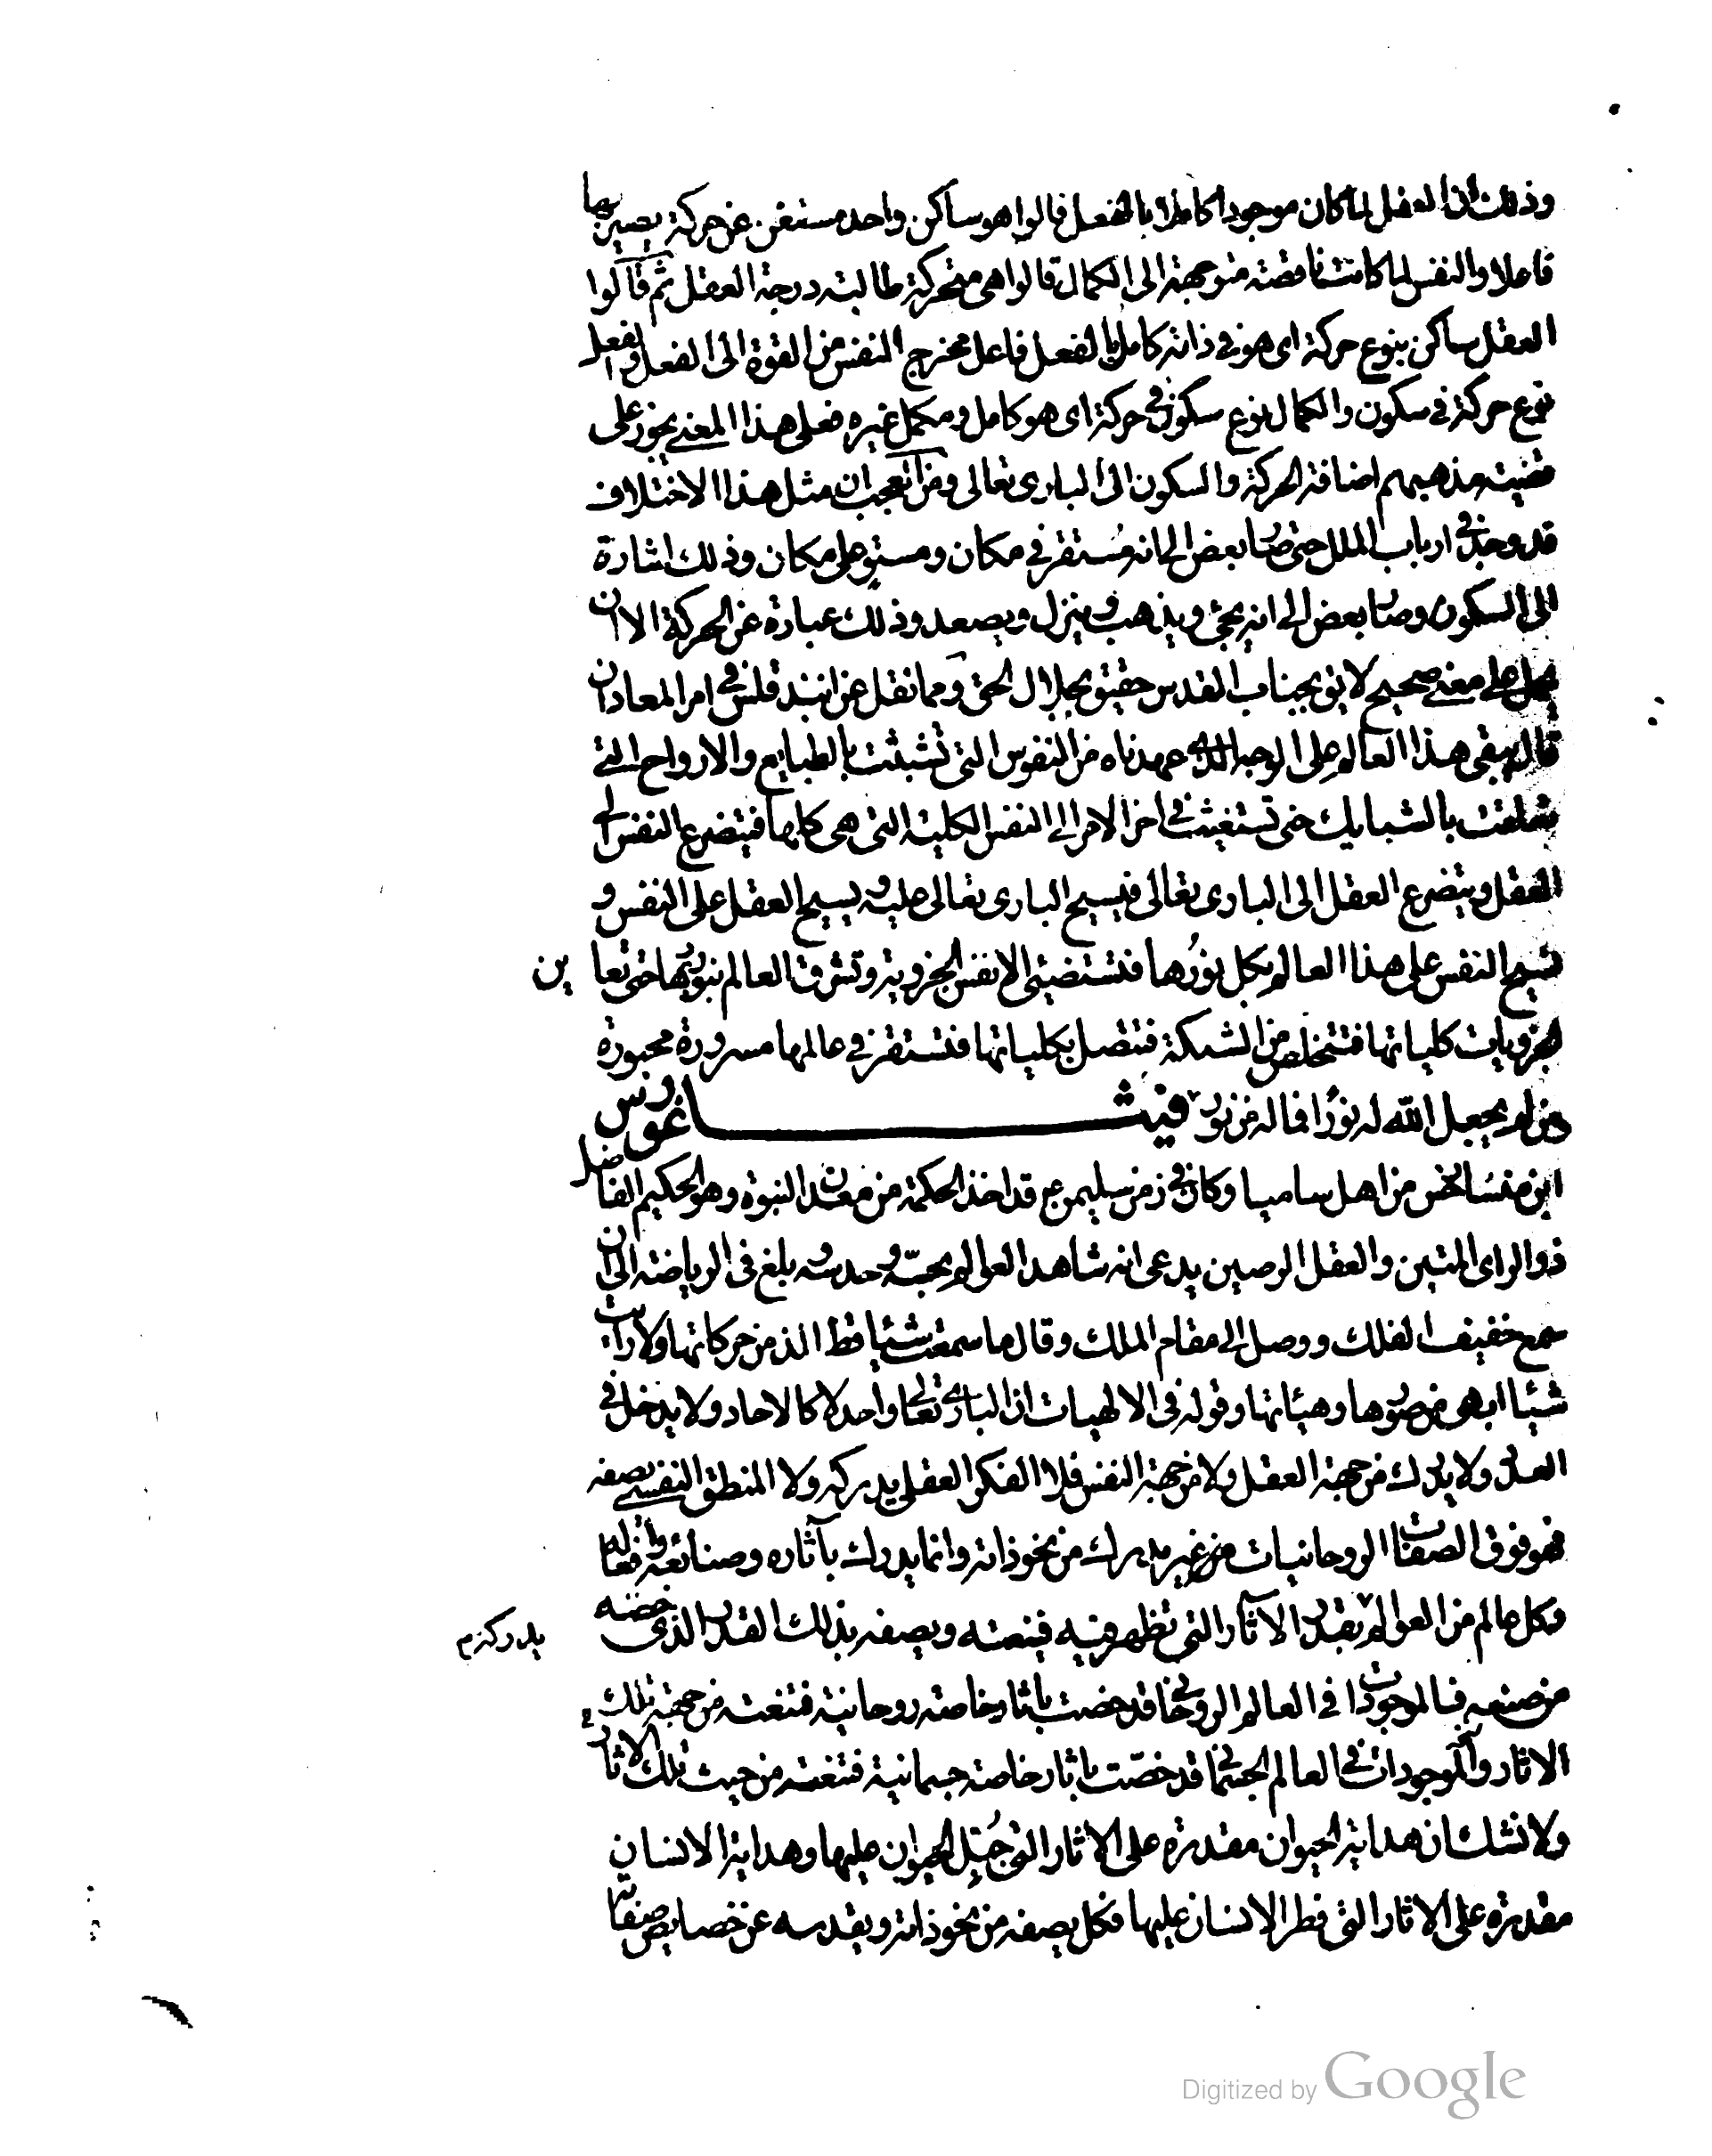 وذلك ان العقل لما كان موجودا كاملا بالفعل قالوا هو ساكن واحد مستغن عن حركة يصير بها
فاعلا والنفس لما كانت ناقصة متوجهة الى الكمال قالوا هى متحركة طالبة درجة العقل ثم قالوا
العقل ساكن بنوع حركة اى هو فى ذاته كامل بالفعل فاعل مخرج النفس من القوة الى الفعل والفعل
نوع حركة فى سكون والكمال نوع سكون فى حركة اى هو كامل ومكمل غيره فعلى هذا المعنى يجوز على
قضية مذهبهم اضافة الحركة والسكون الى البارى تعالى ومن العجب ان مثل هذا الاختلاف
قد وجد فى ارباب الملل حتى صار بعض الى انه مستقر فى مكان ومستو على مكان وذلك اشارة
الى السكون وصار بعض الى انه يجئ ويذهب وينزل ويصعد وذلك عبارة عن الحركة الا ان
يحمل على معنى صحيح لايق بجناب القدس حقيق بجلال الحق ومما نقل عن انبذقلس فى امر المعاد ان
قال يبقى هذا العالم على الوجه الذى عهدناه من النفوس التى تشبثت بالطبايع والارواح التى
تعلقت بالشبايك حتى تستغيث فى اخر الامر الى النفس الكلية التى هى كلها فيتضرع النفس الى
العقل ويتضرع العقل الى البارى تعالى فيسيح البارى تعالى عليه ويسيح العقل على النفس و
تسيح النفس على هذا العالم بكل نورها فتستضيئ الانفس الجزوية وتشرق العالم بنور ربها حتى تعا ين
الجزويات كلياتها فتتخلص من الشبكة فتتصل بكلياتها فتستقر فى عالمها مسرورة محبورة
ومن لم يجعل الله له نورا فما له من نور فيثاغورس
ابن منسارخس من اهل ساميا وكان فى زمن سليمن ع قد اخذ الحكمة من معدن النبوة وهو الحكيم الفاضل
ذو الراى المتين والعقل الرصين يدعى انه شاهد العوالم بحسه وحدسه وبلغ فى الرياضة الى ان
سمع حفيف الفلك ووصل الى مقام الملك وقال ما سمعت شيئا قط الذ من حركاتها ولا رايت
شيئا ابهى من صورها وهيئاتها وقوله فى الالهيات ان البارى تعالى واحد لا كالاحاد ولا يدخل فى
العدد ولا يدرك من جهة العقل ولا من جهة النفس فلا الفكر العقلى يدركه ولا المنطق النفسى يصفه
فهو فوق الصفات الروحانيات غير مدرك من نحو ذاته وانما يدرك بآثاره وصنائعه وافعاله
وكل عالم من العوالم بقدر الآثار التى تظهر فيه فينعته ويصفه بذلك القدر الذى خصه
يدركه م
من صنعه فالموجودات فى العالم الروحانى قد خصت باثار خاصة روحانية فتنعته من جهة تلك
الاثار والموجودات فى العالم الجسمانى قد خصت باثار خاصة جسمانية فتنعته من حيث تلك الاثار
ولا نشك ان هداية الحيوان مقدرة على الاثار التى جبل الحيوان عليها وهداية الانسان
مقدرة على الاثار التى فطر الانسان عليها فكل يصفه من نحو ذاته ويقدسه عن خصايص صفاته
Digitized by Google